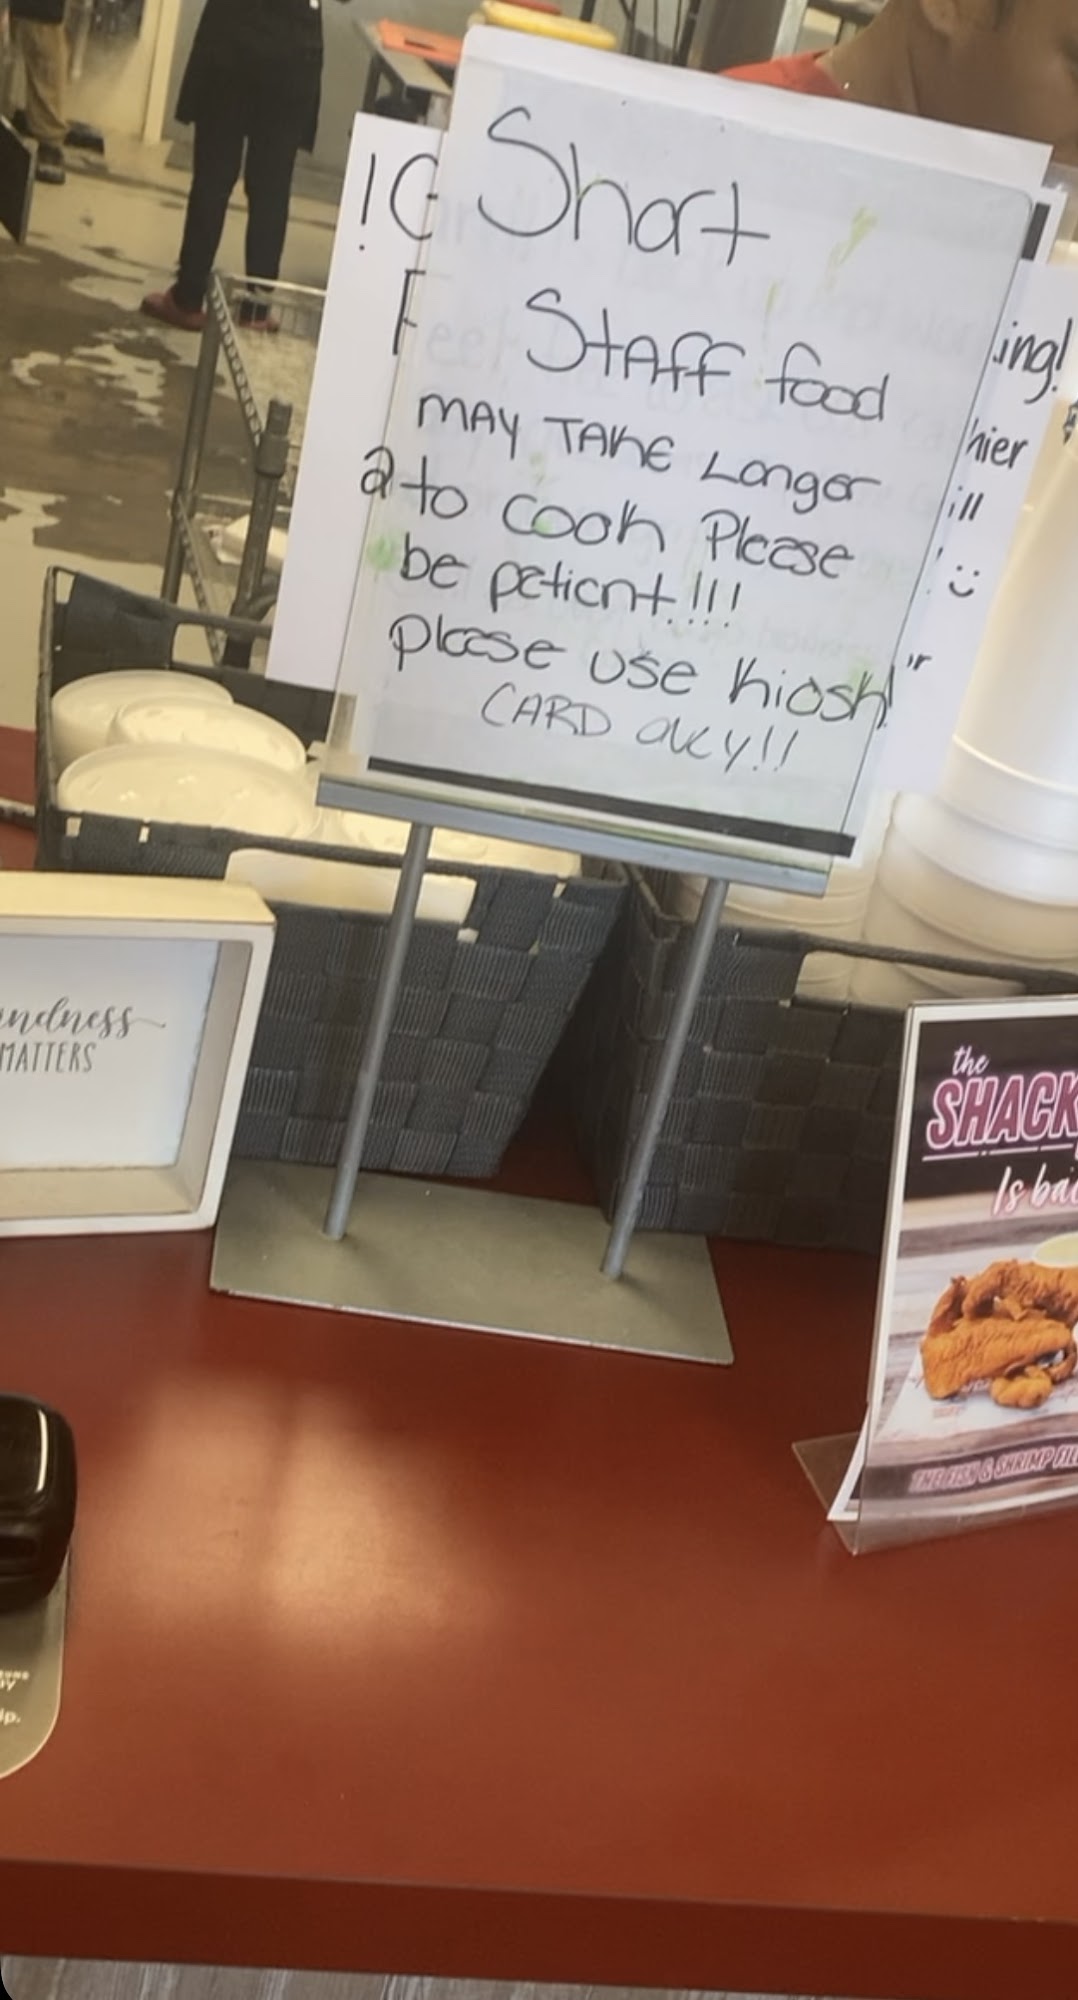 Short
Staff food
MAY TAKE Longer
a to cook Please
be patient!!!
please use kiosk!
CARD ONLY!!
ing!
hier
ill
:)
MATTERS
the
SHACK
Is
THE FISH & SHRIMP